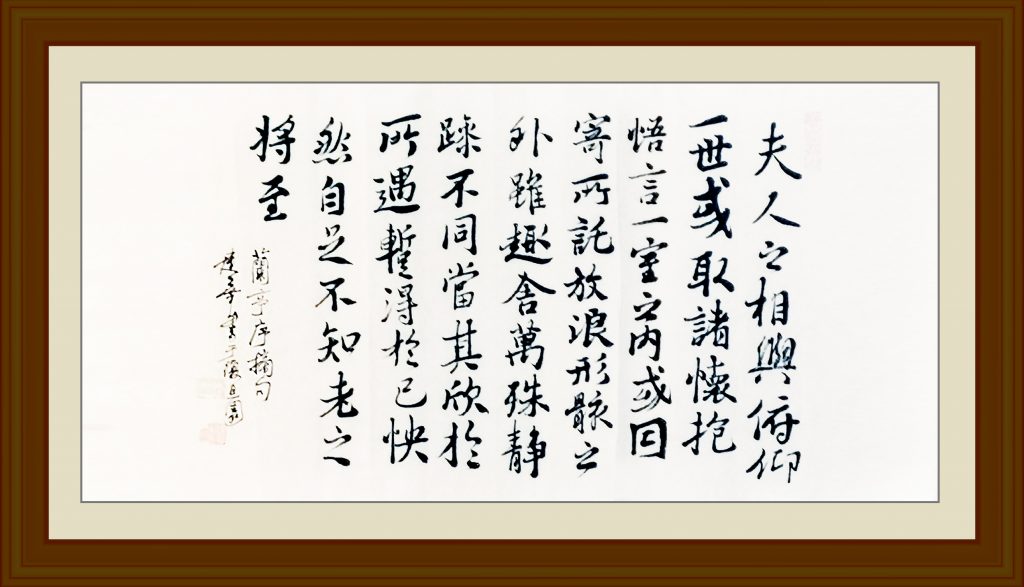 夫人之相與俯仰
一世或取諸懷抱
悟言一室之內或因
寄所託放浪形骸之
外雖趣舍萬殊静
躁不同當其欣於
所遇暫得於己怏
然自足不知老之
將至
蘭亭序摘句